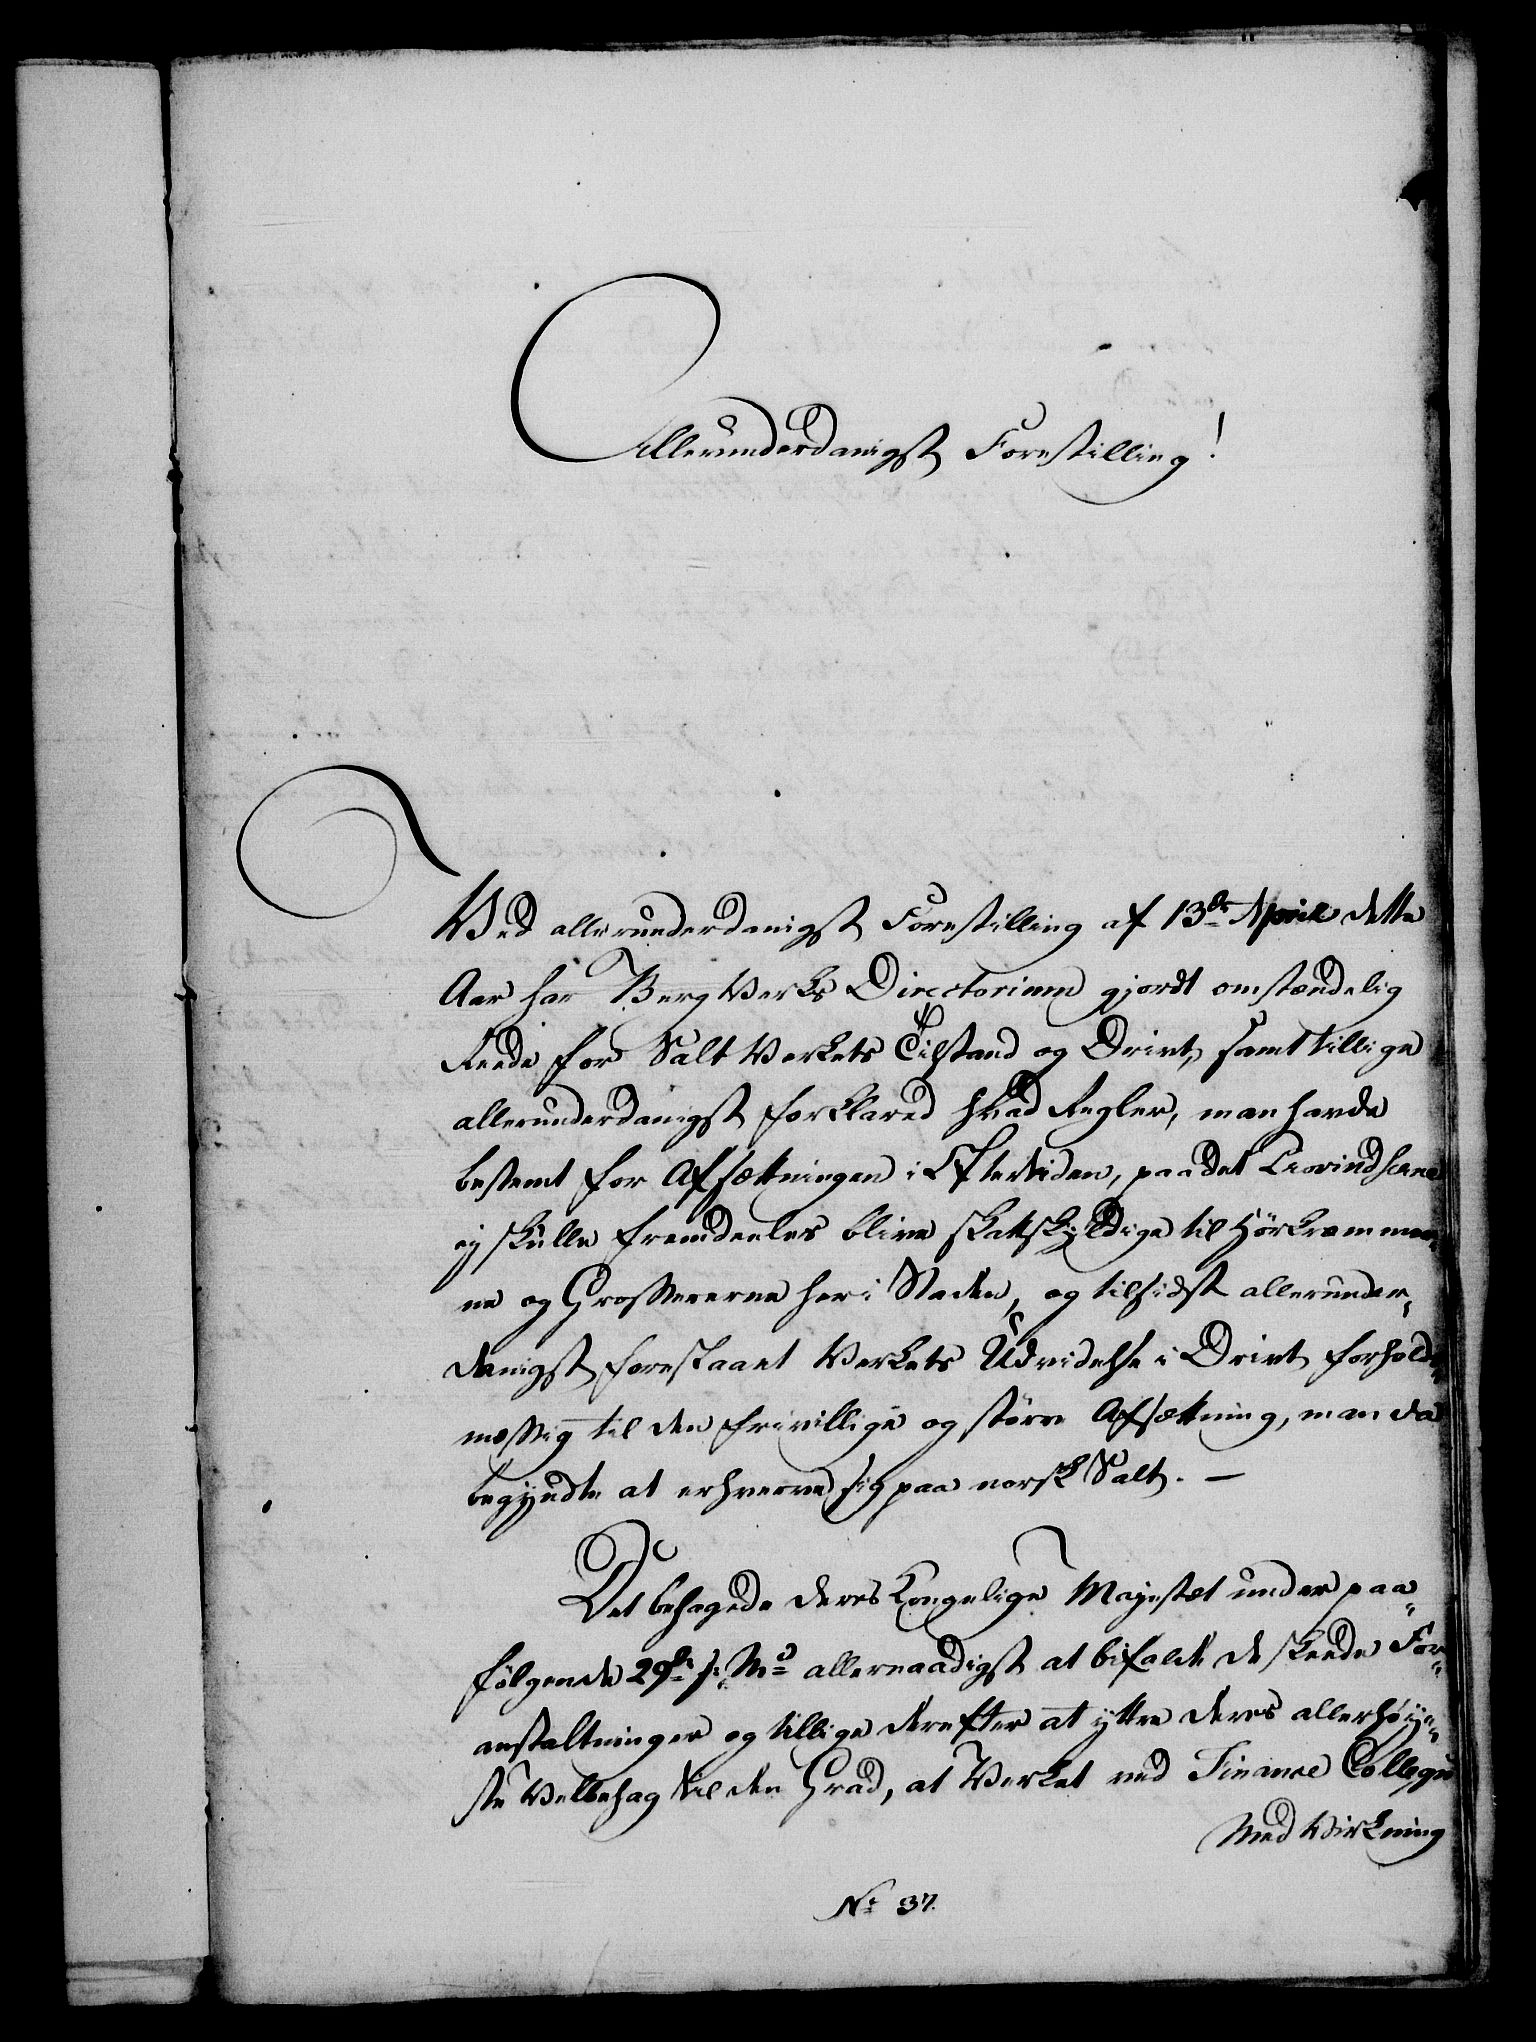 Allerunderdanigst Forestilling!
Ved allerunderdanigst Forestilling af 13de April dette
Aar har BergVerks Directorium gjordt omstændelig
Reede for Salt Verkets Tilstand og Drivt, samt tillige
allerunderdanigst forklared hvad Regler, man havde
bestemt for Afsættningen i Eftertiden, paa det Provindserne
ej skulle fremdeeles blive skattskyldige til Hörkræmmer„
ne og Grossererne her i Staden, og tilsidst allerunder„
danigst forestaaet Verkets Udvidelse i Drivt forholds„
mæssig til den frivillige og större Afsættning, man da
begyndte at erhverve sig paa norsk Salt. —
Det behagede Deres Kongelige Majestæt under paa„
fölgende 29de s: Md allernaadigst at bifalde de skeede For„
anstaltninger og tillige derefter at yttre Deres allerhöye„
ste Velbehag til den Grad, at Verket ved Finance Collegii
Medvirkning
No 37.